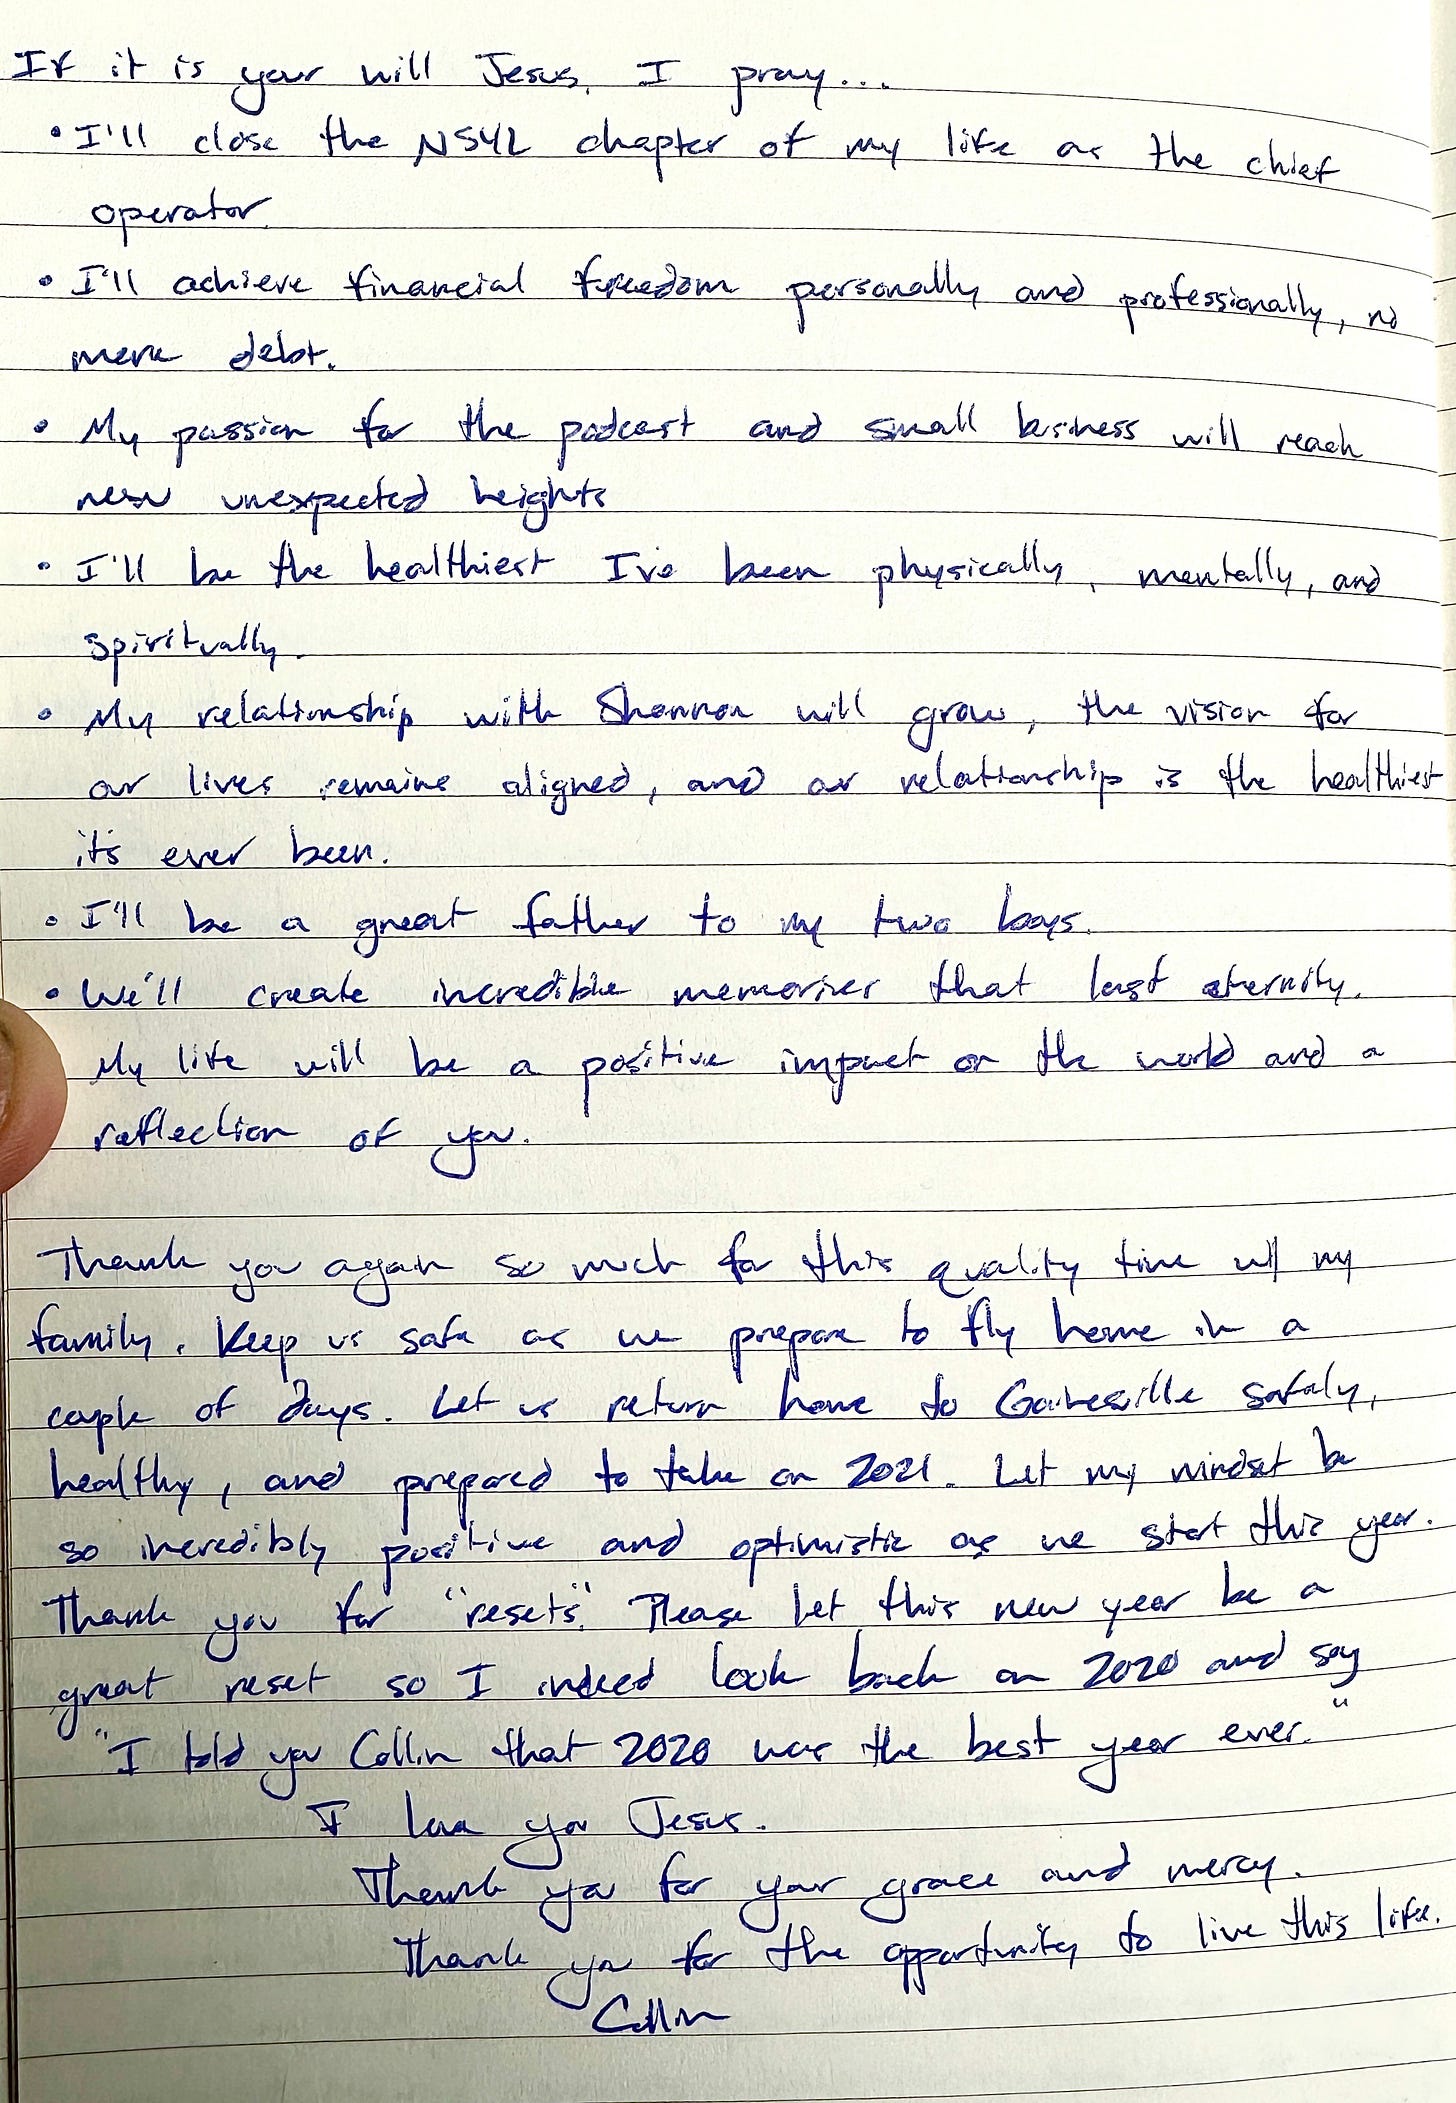 If it is your will Jesus, I pray...
• I'll close the NSYL chapter of my life as the chief
operator.
• I'll achieve financial freedom personally and professionally, no
more debt.
• My passion for the podcast and small business will reach
new unexpected heights
• I'll be the healthiest I've been physically, mentally, and
spiritually.
• My relationship with Shannon will grow, the vision for
our lives remains aligned, and our relationship is the healthiest
it's ever been.
• I'll be a great father to my two boys.
• We'll create incredible memories that last eternity.
My life will be a positive impact on the world and a
reflection of you.
Thank you again so much for this quality time w/ my
family. Keep us safe as we prepare to fly home in a
couple of days. Let us return home to Gainesville safely,
healthy, and prepared to take on 2021. Let my mindset be
so incredibly positive and optimistic as we start this year.
Thank you for "resets". Please let this new year be a
great reset so I indeed look back on 2020 and say
"I told you Collin that 2020 was the best year ever."
I love you Jesus.
Thank you for your grace and mercy.
Thank you for the opportunity to live this life.
Collin